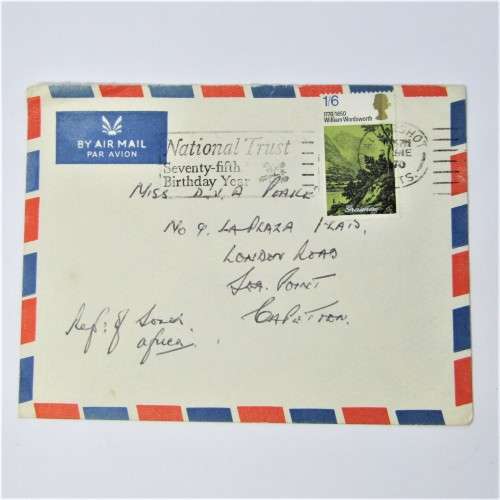 BY AIR MAIL
PAR AVION
National Trust
Seventy-fifth
Birthday Year
1/6
1770/1850
William Wordsworth
Grasmere
MISS D.V.A
NO 9. LA PLAZA FLATS,
LONDON ROAD
SEA POINT
CAPETOWN.
Rep: of South
Africa.